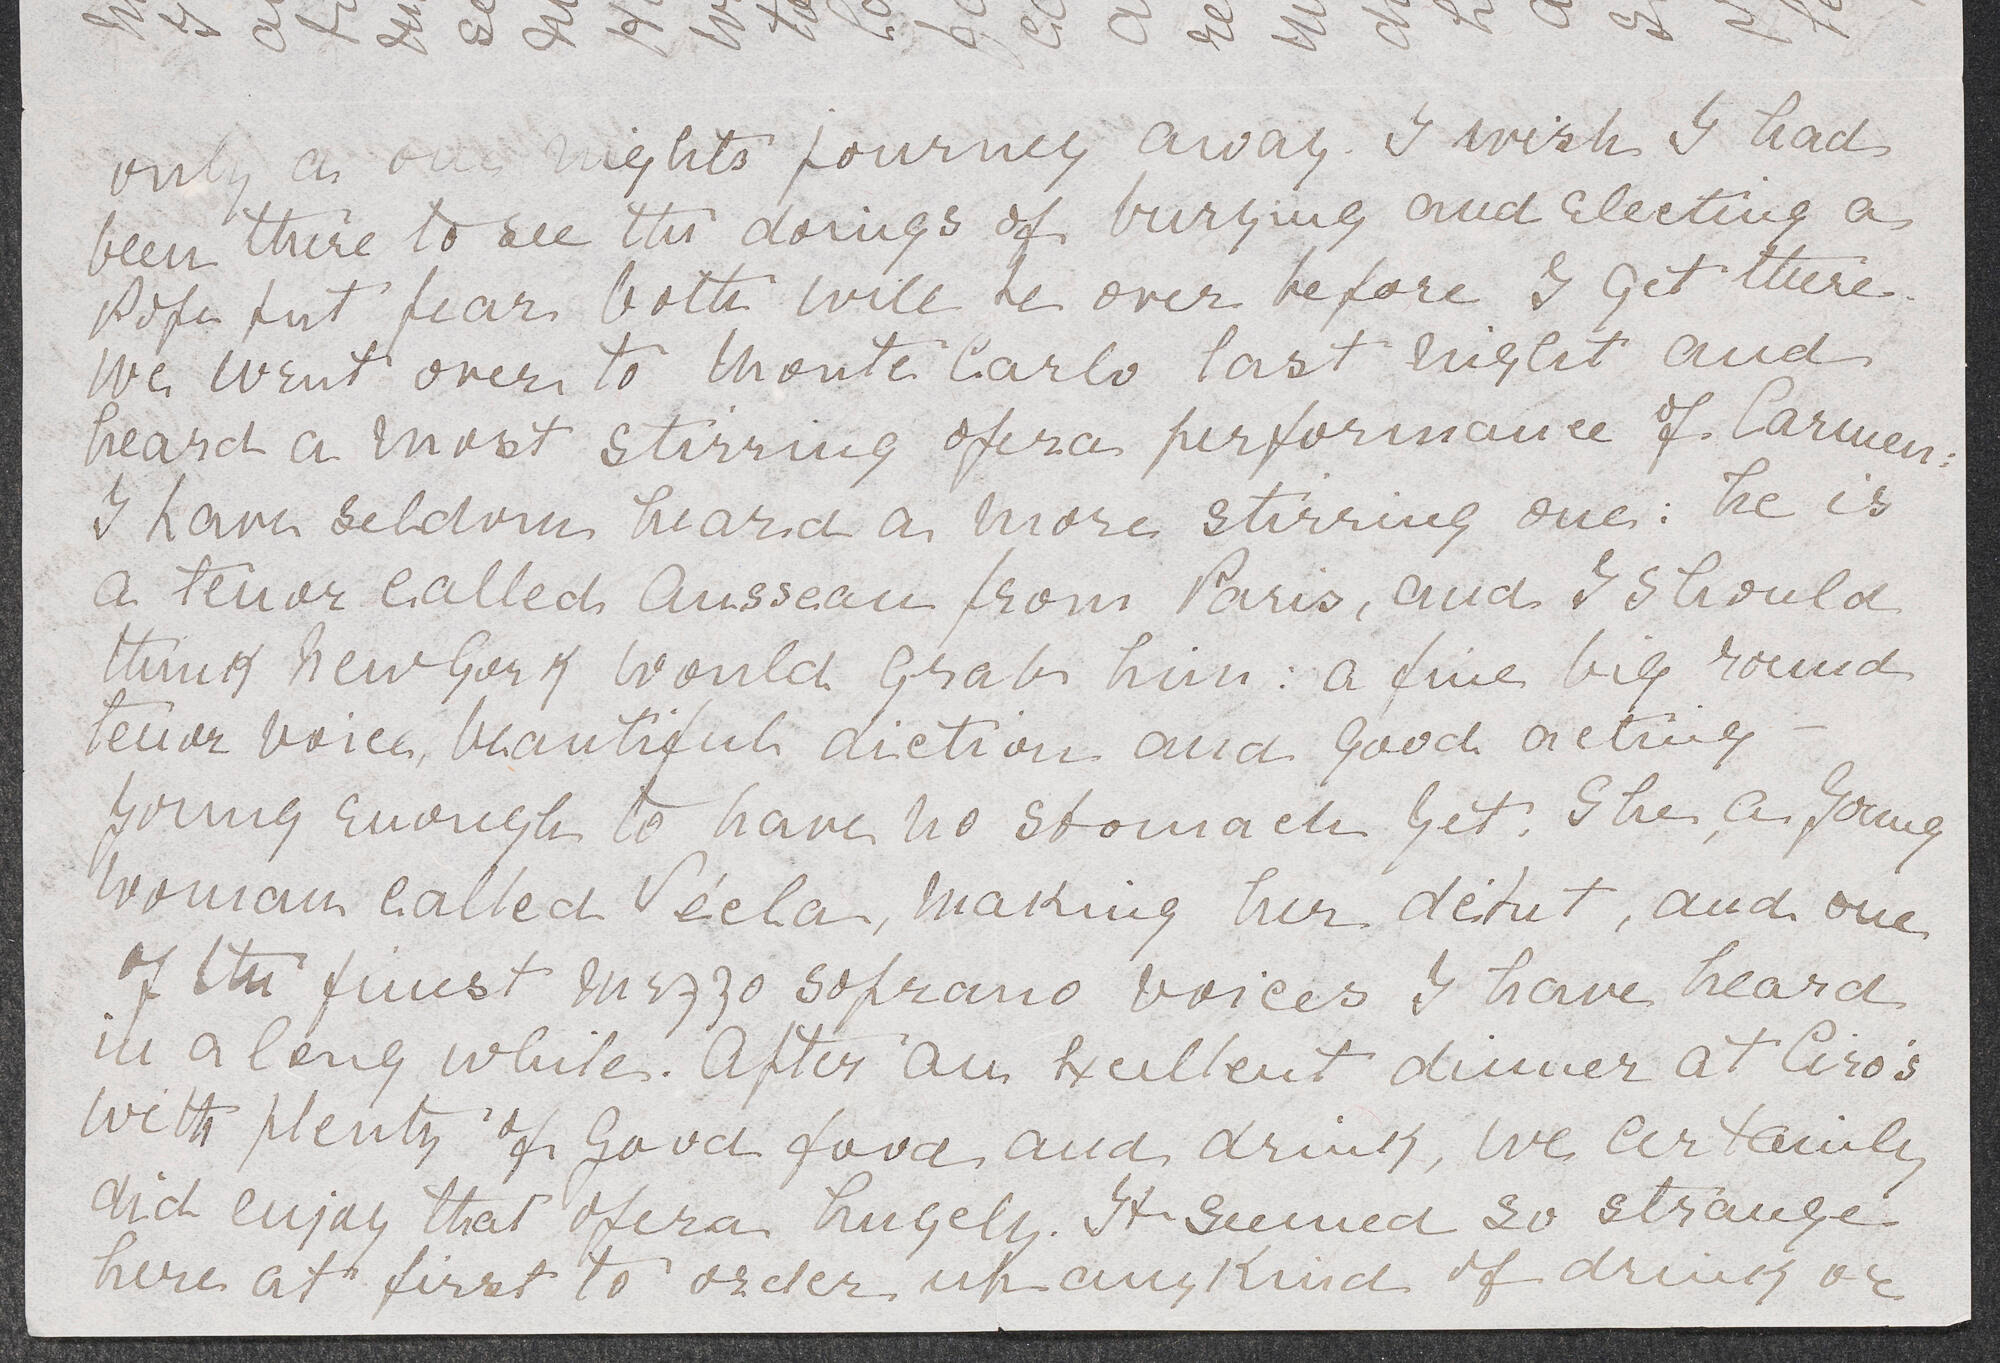 only a one nights journey away. I wish I had
been there to see the doings of burying and electing a
Pope but fear both will be over before I get there.
We went over to Monte Carlo last night and
heard a most stirring opera performance of Carmen:
I have seldom heard a more stirring one: he is
a tenor called Ansseau from Paris, and I should
think New York would grab him: a fine big round
tenor voice, beautiful diction and good acting –
young enough to have no stomach yet. She, a young
woman called Vécla, making her début, and one
of the finest mezzo soprano voices I have heard
in a long while. After an excellent dinner at Ciro's
with plenty of good food and drink, we certainly
did enjoy that opera hugely. It seemed so strange
here at first to order up any kind of drink or